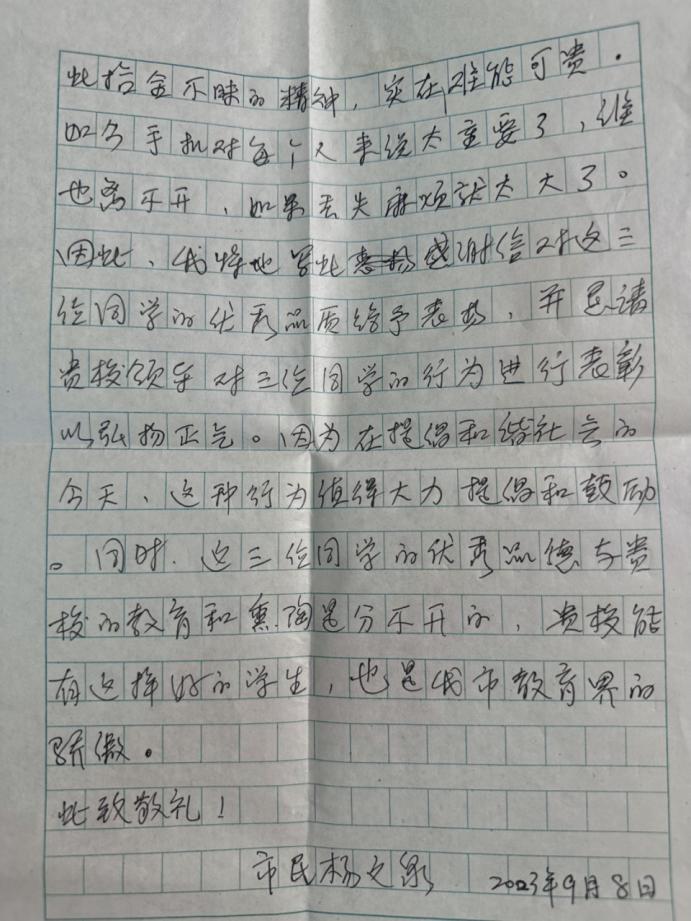 此拾金不昧的精神，实在难能可贵。
如今手机对每个人来说太重要了，谁
也离不开，如果丢失麻烦就太大了。
因此，我特地写此感谢信对这三
位同学的优秀品质给予表扬，并恳请
贵校领导对三位同学的行为进行表彰
以弘扬正气。因为在提倡和谐社会的
今天，这种行为值得大力提倡和鼓励
。同时，这三位同学的优秀品德与贵
校的教育和熏陶是分不开的，贵校能
有这样好的学生，也是我市教育界的
骄傲。
此致敬礼！
市民杨文 2023年9月8日